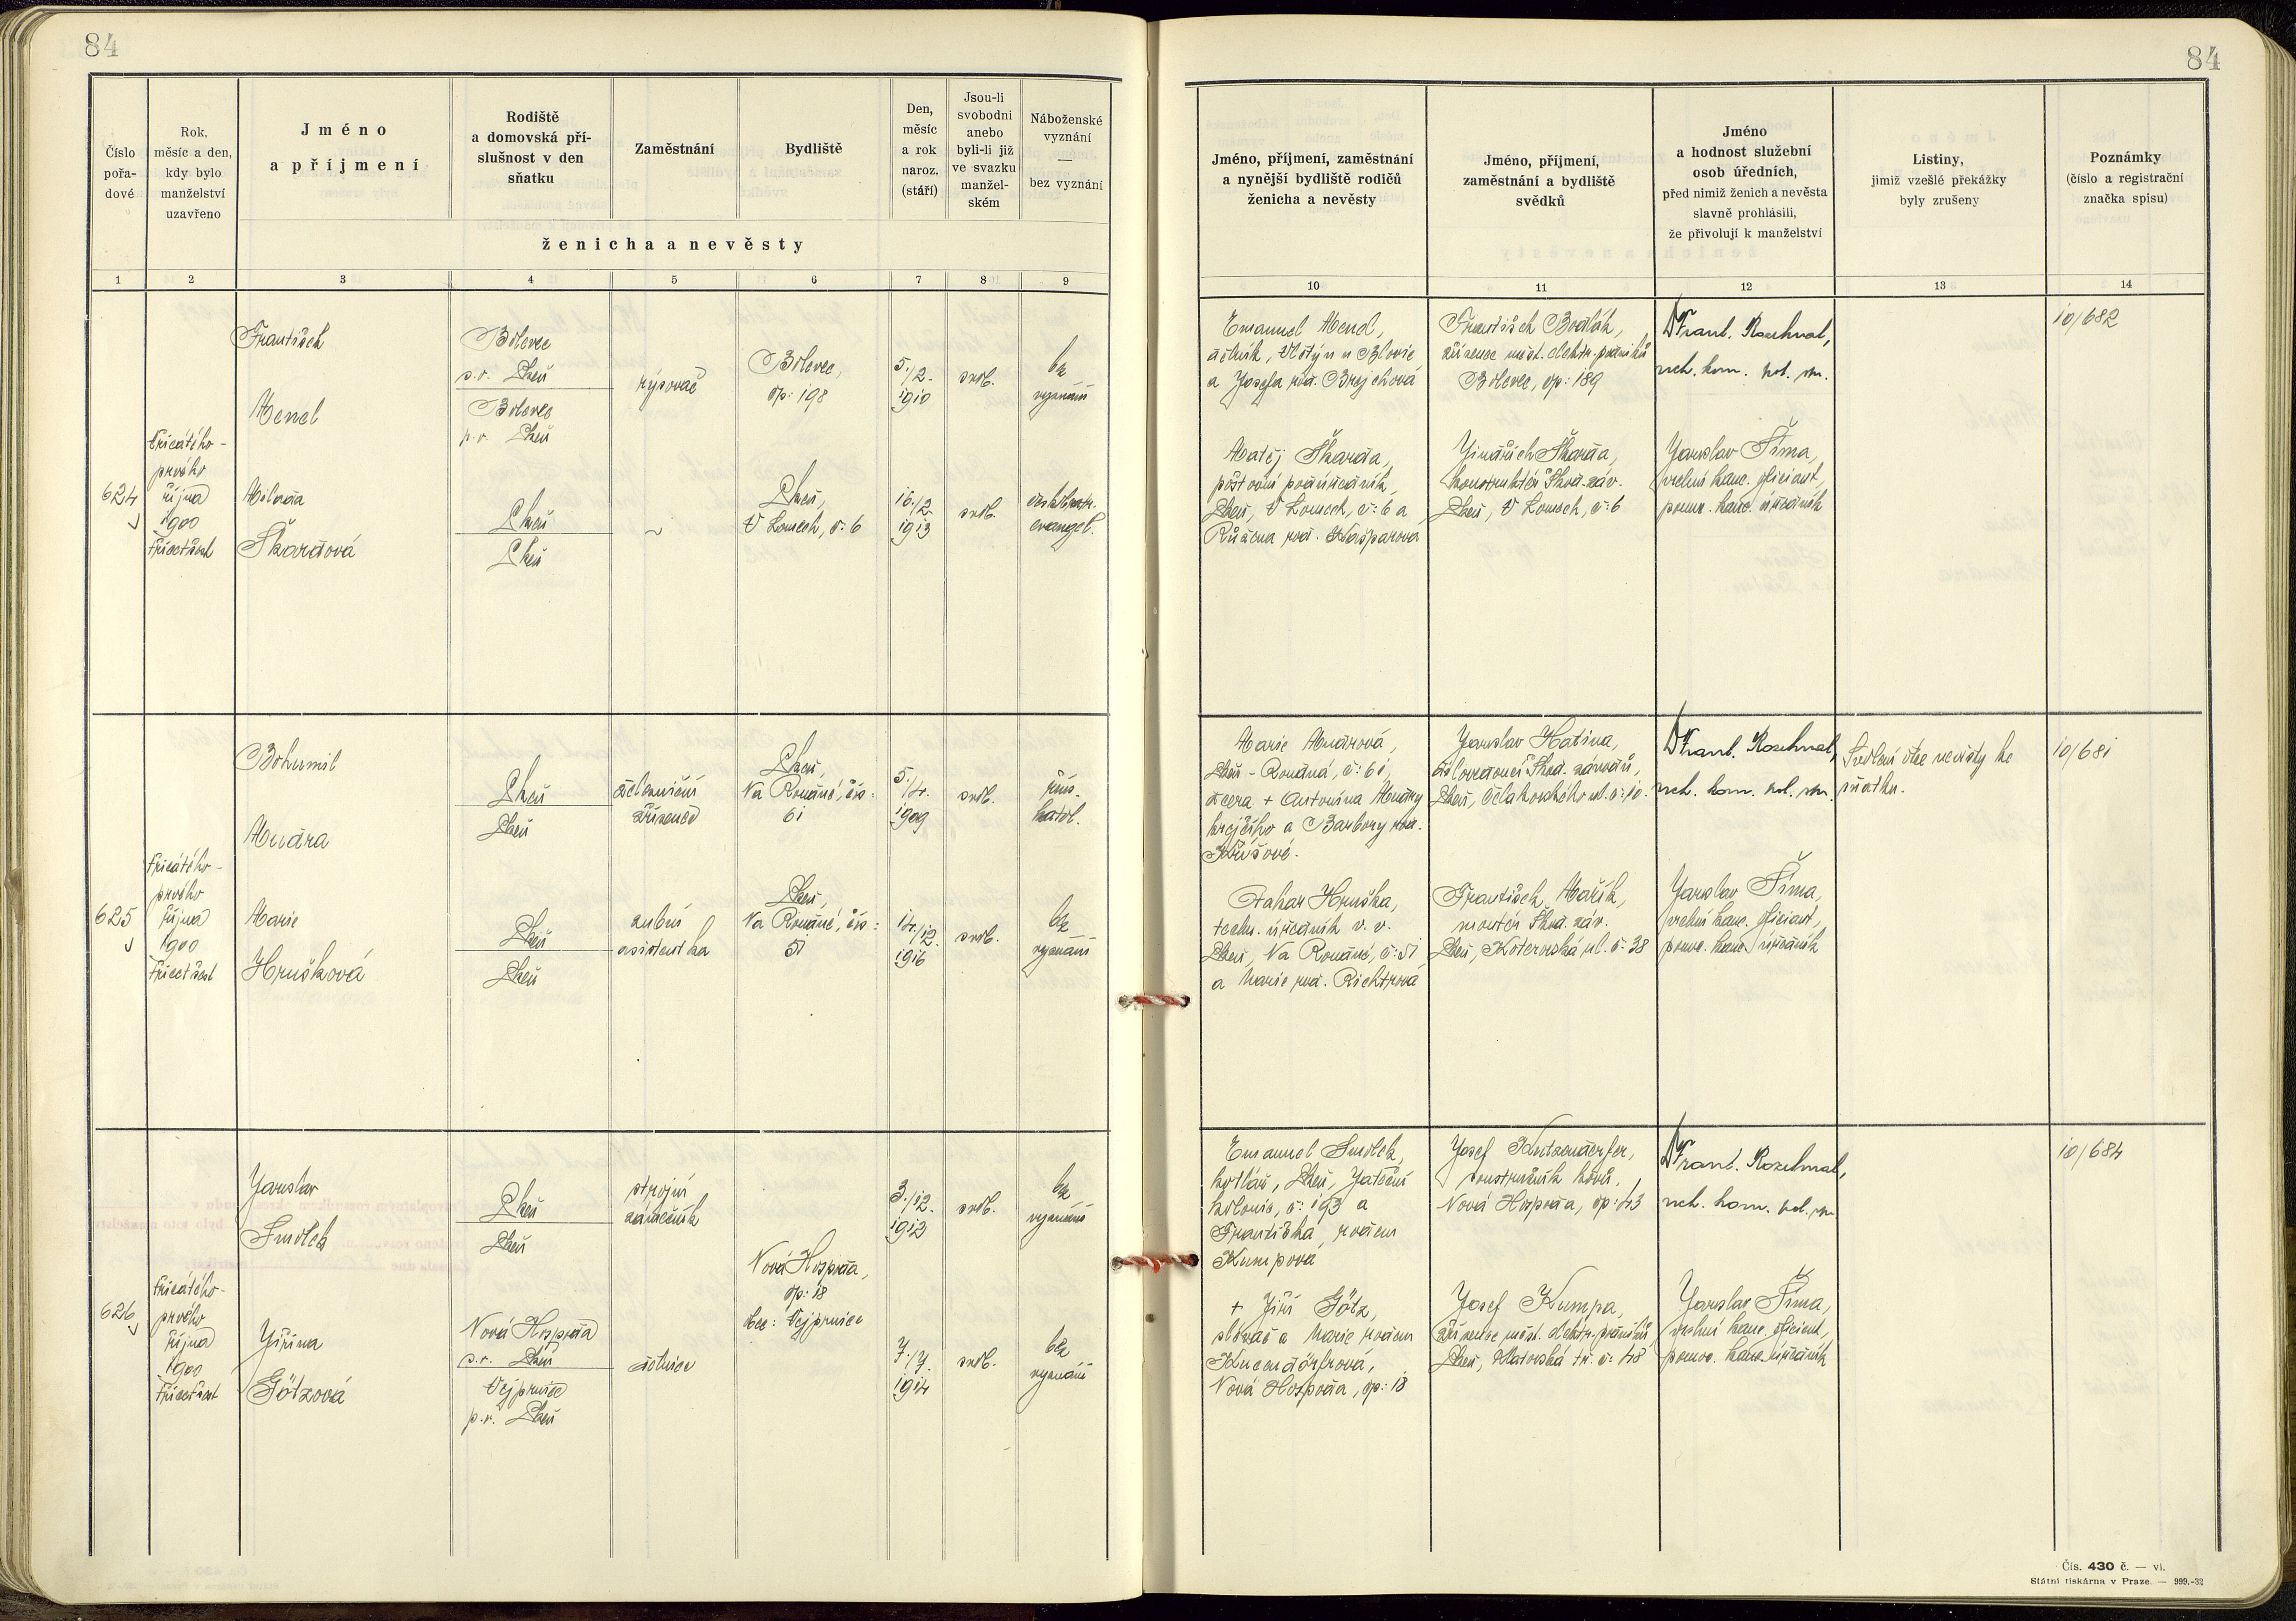 84
84
Číslo
pořa-
dové
Rok,
měsíc a den,
kdy bylo
manželství
uzavřeno
Jméno
a příjmení
Rodiště
a domovská pří-
slušnost v den
sňatku
Zaměstnání
Bydliště
Den,
měsíc
a rok
naroz.
(stáří)
Jsou-li
svobodni
anebo
byli-li již
ve svazku
manžel-
ském
Náboženské
vyznání
—
bez vyznání
ženicha a nevěsty
1 2 3 4 5 6 7 8 9
Jméno, příjmení, zaměstnání
a nynější bydliště rodičů
ženicha a nevěsty
Jméno, příjmení,
zaměstnání a bydliště
svědků
Jméno
a hodnost služební
osob úředních,
před nimiž ženich a nevěsta
slavně prohlásili,
že přivolují k manželství
Listiny,
jimiž vzešlé překážky
byly zrušeny
Poznámky
(číslo a registrační
značka spisu)
10 11 12 13 14
624
třicátého-
prvého
října
1900
třicetšest
František
Mencl
Bolevec
s.o. Plzeň
Bolevec
p.o. Plzeň
rýsovač
Bolevec,
čp: 198
5./2.
1910
svob.
bez
vyznání
Miloda
Škardová
Plzeň
Plzeň
~
Plzeň,
V Lomech, č: 6
16./2.
1913
svob.
českobratr.
evangel.
Emanuel Mencl,
dělník, Vlčtýn u Blovic
a Josefa roz. Brejchová
Matěj Škarda,
poštovní podúředník,
Plzeň, V Lomech, č: 6 a
Růžena roz. Kašparová
František Bodlák,
zřízenec měst. elektr. podniků
Bolevec, čp: 189
Jindřich Škarda,
konstruktér Škod. záv.
Plzeň, V Lomech, č: 6
Dr Frant.
Jaroslav Šíma,
vrchní kanc. oficiant,
pomoc. kanc. úředník
10/682
625
třicátého-
prvého
října
1900
třicetšest
Bohumil
Mudra
Plzeň
Plzeň
železniční
zřízenec
Plzeň,
Na Roudné, čís:
61
5./4.
1909
svob.
řím.
katol.
Marie
Hrušková
Plzeň
Plzeň
zubní
asistentka
Plzeň,
Na Roudné, čís:
51
14./12.
1916
svob.
bez
vyznání
Marie Mudrová,
Plzeň - Roudná, č: 61,
dcera + Antonína Mudry
krejčího a Barbory roz.
Křížové.
Otakar Hruška,
techn. úředník v. v.
Plzeň, Na Roudné, č: 51
a Marie roz. Richtrová
Jaroslav Hatina,
číslovedoucí Škod. závodů,
Plzeň, Čelakovského ul. č: 10.
František Mařík,
montér Škod. záv.
Plzeň, Koterovská ul. č: 38
Dr Frant.
Jaroslav Šíma,
vrchní kanc. oficiant,
pomoc. kanc. úředník
Svolení otce nevěsty ke
sňatku.
10/681
626
třicátého-
prvého
října
1900
třicetšest
Jaroslav
Smolek
Plzeň
Plzeň
strojní
zámečník
Nová Hospoda,
čp: 18
bec: Vejprnice
3./12.
1912
svob.
bez
vyznání
Jiřina
Götzová
Nová Hospoda
s.o. Plzeň
Vejprnice
p.o. Plzeň
dělnice
7./7.
1914
svob.
bez
vyznání
Emanuel Smolek,
kotlář, Plzeň, Jateční
kolonie, č: 193 a
Františka, rozen
Kumpová
+ Jiří Götz,
slévač a Marie rozen
Nová Hospoda, čp: 18
Josef
soustružník kovů,
Nová Hospoda, čp: 43
Josef Kumpa,
zřízenec měst. elektr. podniků
Plzeň, Klatovská tř. č: 48
Dr Frant.
Jaroslav Šíma,
vrchní kanc. oficiant,
pomoc. kanc. úředník
10/684
Čís. 430 č. — vi.
Státní tiskárna v Praze. — 999.-32